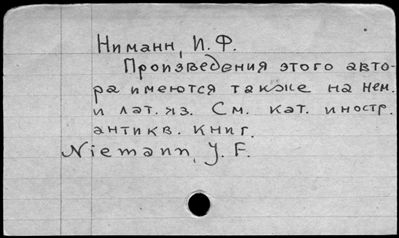 Ниманн, И. Ф.
Произведения этого авто-
ра имеются также на нем.
и лат. яз. См. кат. иностр.
антикв. книг.
Niemann, J. F.